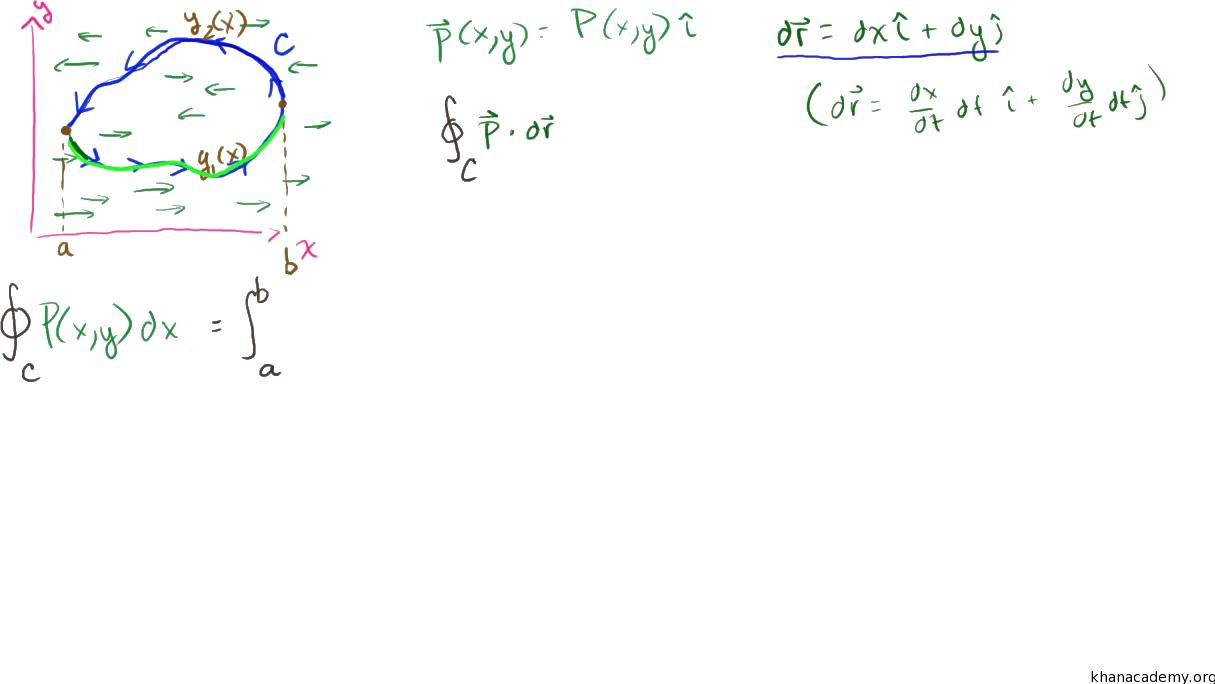 y
y₂(x)
C
y₁(x)
a
b
x
P⃗(x,y) = P(x,y) î
dr⃗ = dx î + dy ĵ
(dr⃗ = dx/dt dt î + dy/dt dt ĵ)
∮_C P⃗ · dr⃗
∮_C P(x,y) dx = ∫_a^b
khanacademy.org